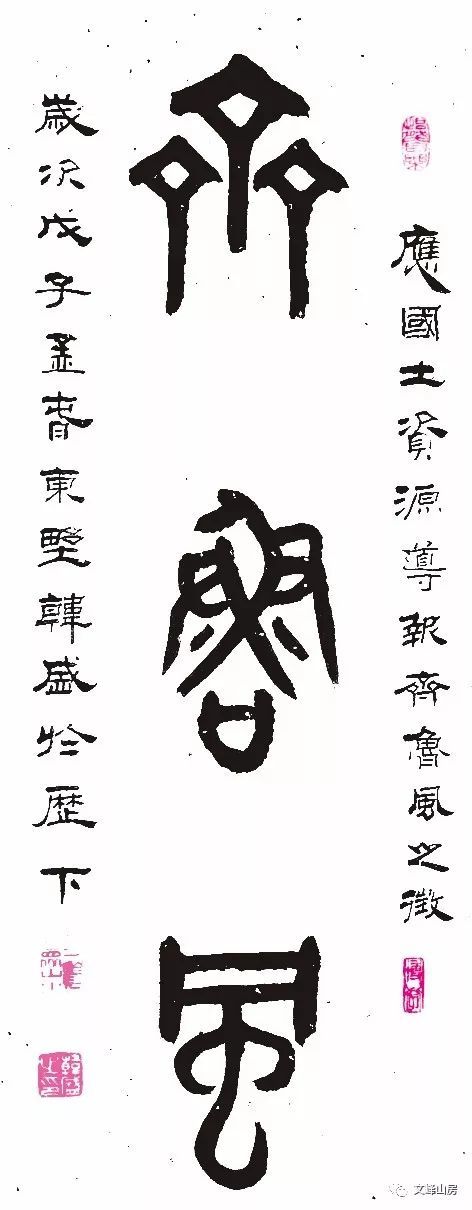 應國土資源導報齊魯風之徵
齊魯風
歲次戊子孟春東野韓盛於歷下
韓盛之印
文峄山房